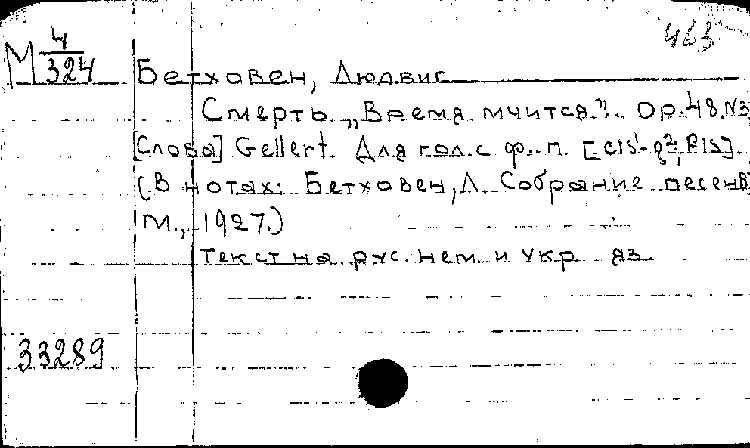 463
М 4/324
Бетховен, Людвиг
Смерть „Время мчится". Op.48,N3
[Слова] Gellert. Для гол. с ф.-п. [cis¹-g², Fis].
(В нотах: Бетховен, Л. Собрание песен
М., 1927.)
Текст на рус. нем. и укр яз.
33289